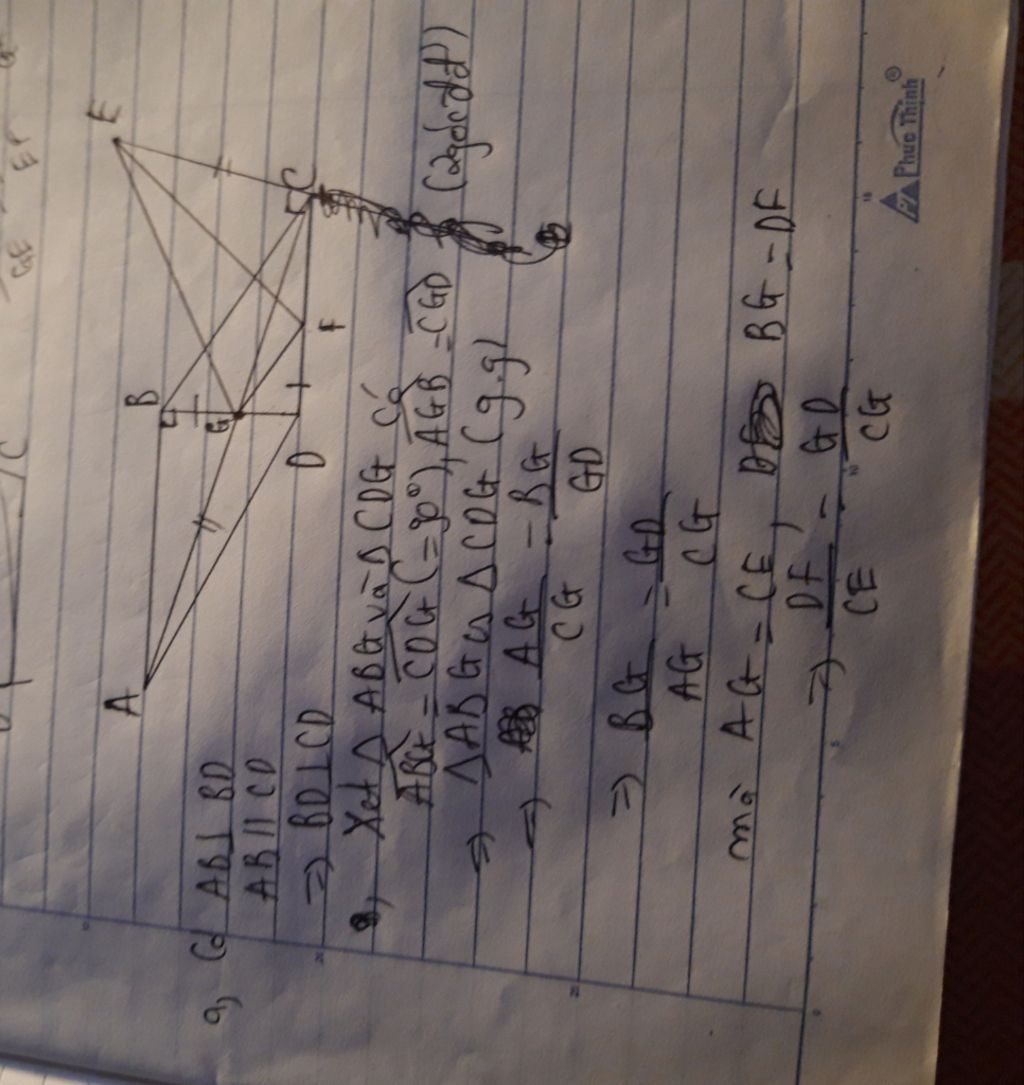 A
B
E
G
C
D
F
a, Có AB ⊥ BD
AB // CD
=> BD ⊥ CD
Xét Δ ABG và Δ CDG có
ABG = CDG (= 90°), AGB = CGD (2gócđđ)
=> Δ ABG ∽ Δ CDG (g.g)
=> AG/CG = BG/GD
=> BG/AG = GD/CG
mà AG = CE, BG = DF
=> DF/CE = GD/CG
Phuc Thinh®